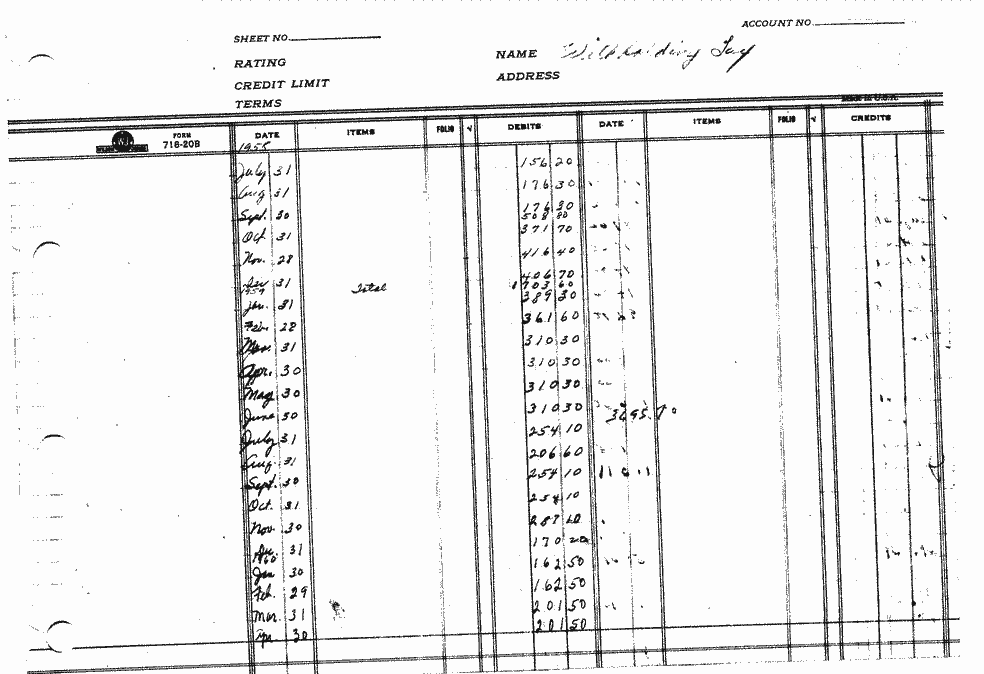 ACCOUNT NO.
SHEET NO.
NAME Withholding Tax
RATING
ADDRESS
CREDIT LIMIT
TERMS
MADE IN U.S.A.
FORM 716-20B DATE ITEMS FOLIO ✓ DEBITS DATE ITEMS FOLIO ✓ CREDITS
1958
July 31 156 20
Aug 31 176 30
Sept. 30 176 30
508 80
Oct 31 371 70
Nov. 28 416 40
Dec 31 Total 406 70
1703 60
1959
Jan. 31 389 30
Feb. 28 361 60
Mar. 31 310 30
Apr. 30 310 30
May 30 310 30
June 30 310 30 3695.70
July 31 254 10
Aug 31 206 60
Sept. 30 254 10
Oct. 31 254 10
Nov. 30 287 60
Dec. 31 170 20
1960
Jan 30 162 50
Feb. 29 162 50
Mar. 31 201 50
Apr. 30 201 50